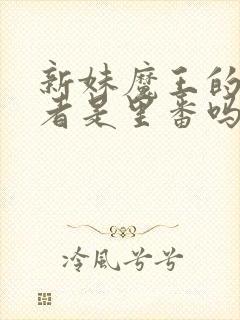 新妹魔王的
者是里番吗
冷風兮兮